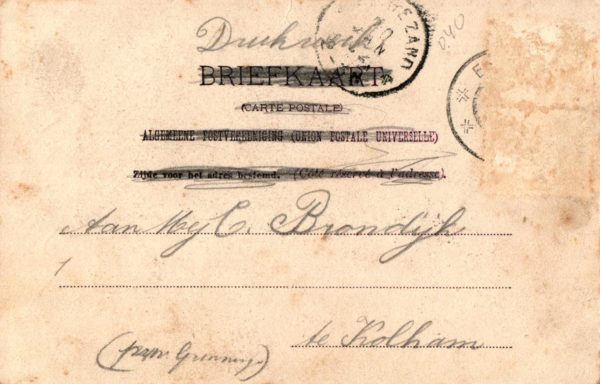 Drukwerk
BRIEFKAART
(CARTE POSTALE)
ALGEMEENE POSTVEREENIGING (UNION POSTALE UNIVERSELLE)
Zijde voor het adres bestemd. (Côté réservé à l'adresse.)
Aan Mej C. Brondijk
te Kolham
(prov. Groningen)
040